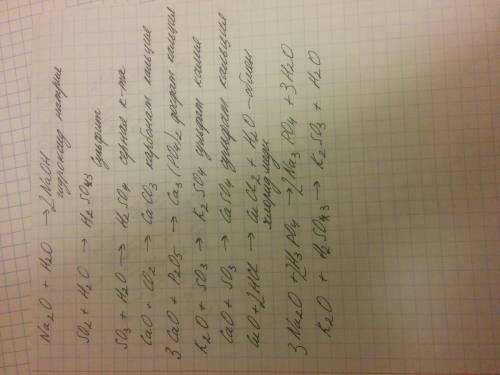 Na2O + H2O → 2NaOH
гидроксид натрия
SO2 + H2O → H2SO3 сульфит
SO3 + H2O → H2SO4 серная к-та
CaO + CO2 → CaCO3 карбонат кальция
3 CaO + P2O5 → Ca3(PO4)2 фосфат кальция
K2O + SO3 → K2SO4 сульфат калия
CaO + SO3 → CaSO4 сульфат кальция
CuO + 2HCl → CuCl2 + H2O - обмен
хлорид меди
3 Na2O + 2H3PO4 → 2Na3PO4 + 3H2O
K2O + H2SO3 → K2SO3 + H2O